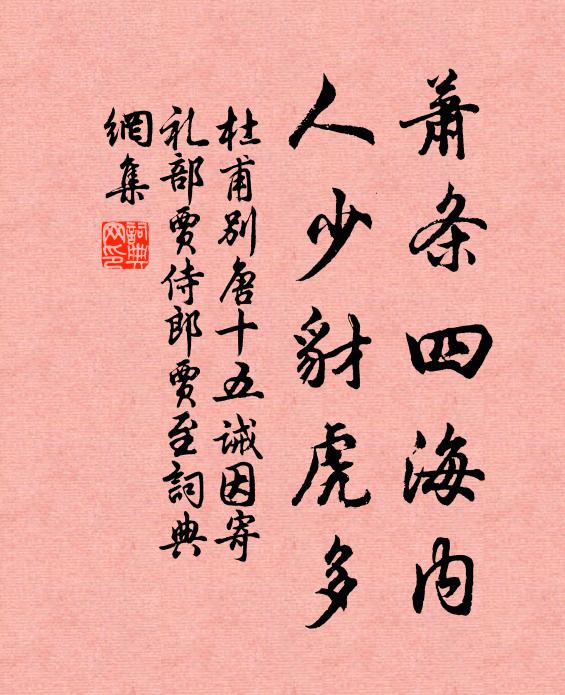 萧条四海内
人少豺虎多
杜甫别唐十五诫因寄
礼部贾侍郎贾至詞典
網集
詞典
网印